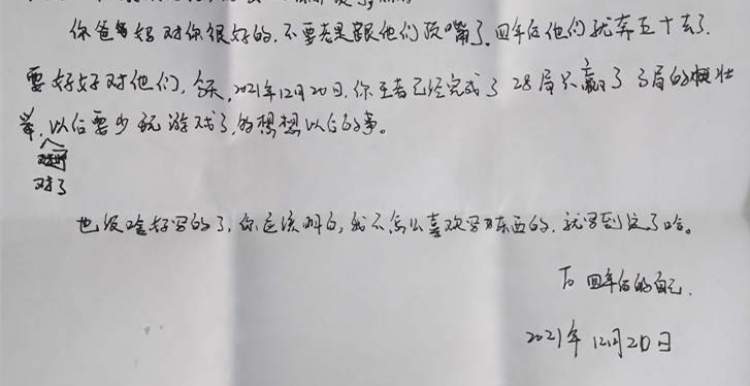 你爸爸妈对你很好的，不要老是跟他们顶嘴了，四年后他们就奔五十去了。
要好好对他们，今天，2021年12月20日，你王者已经完成了28局只赢了3局的壮
举，以后要少玩游戏了，多想想以后的事。
对了
也没啥好写的了，你应该明白，我不怎么喜欢写东西的，就写到这了哈。
To 四年后的自己.
2021年12月20日